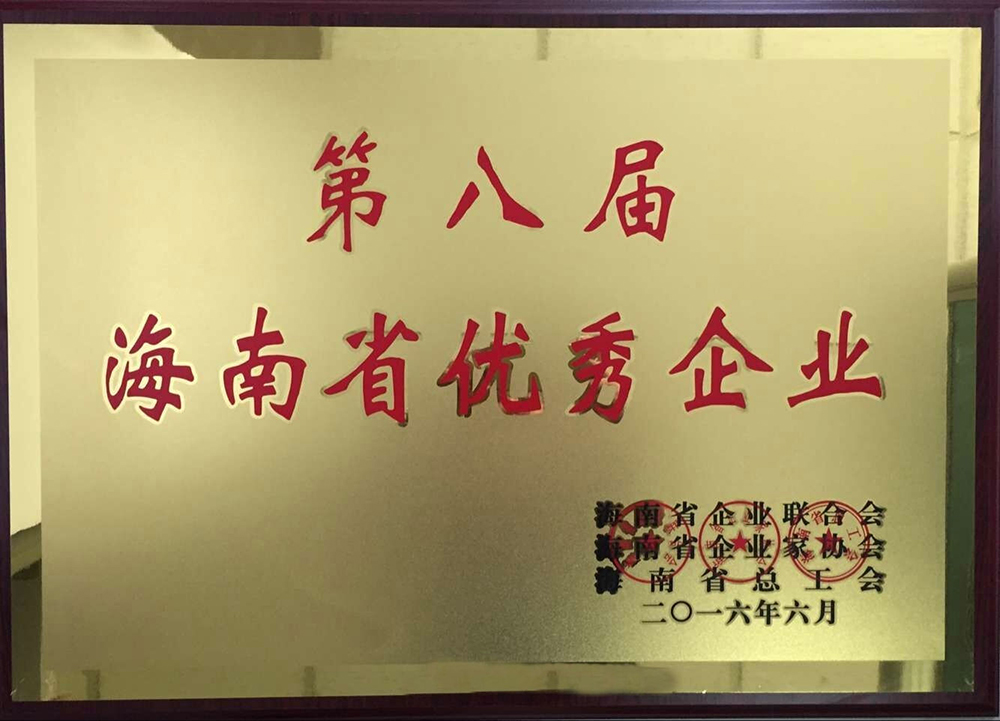 第八届
海南省优秀企业
海南省企业联合会
海南省企业家协会
海南省总工会
二〇一六年六月